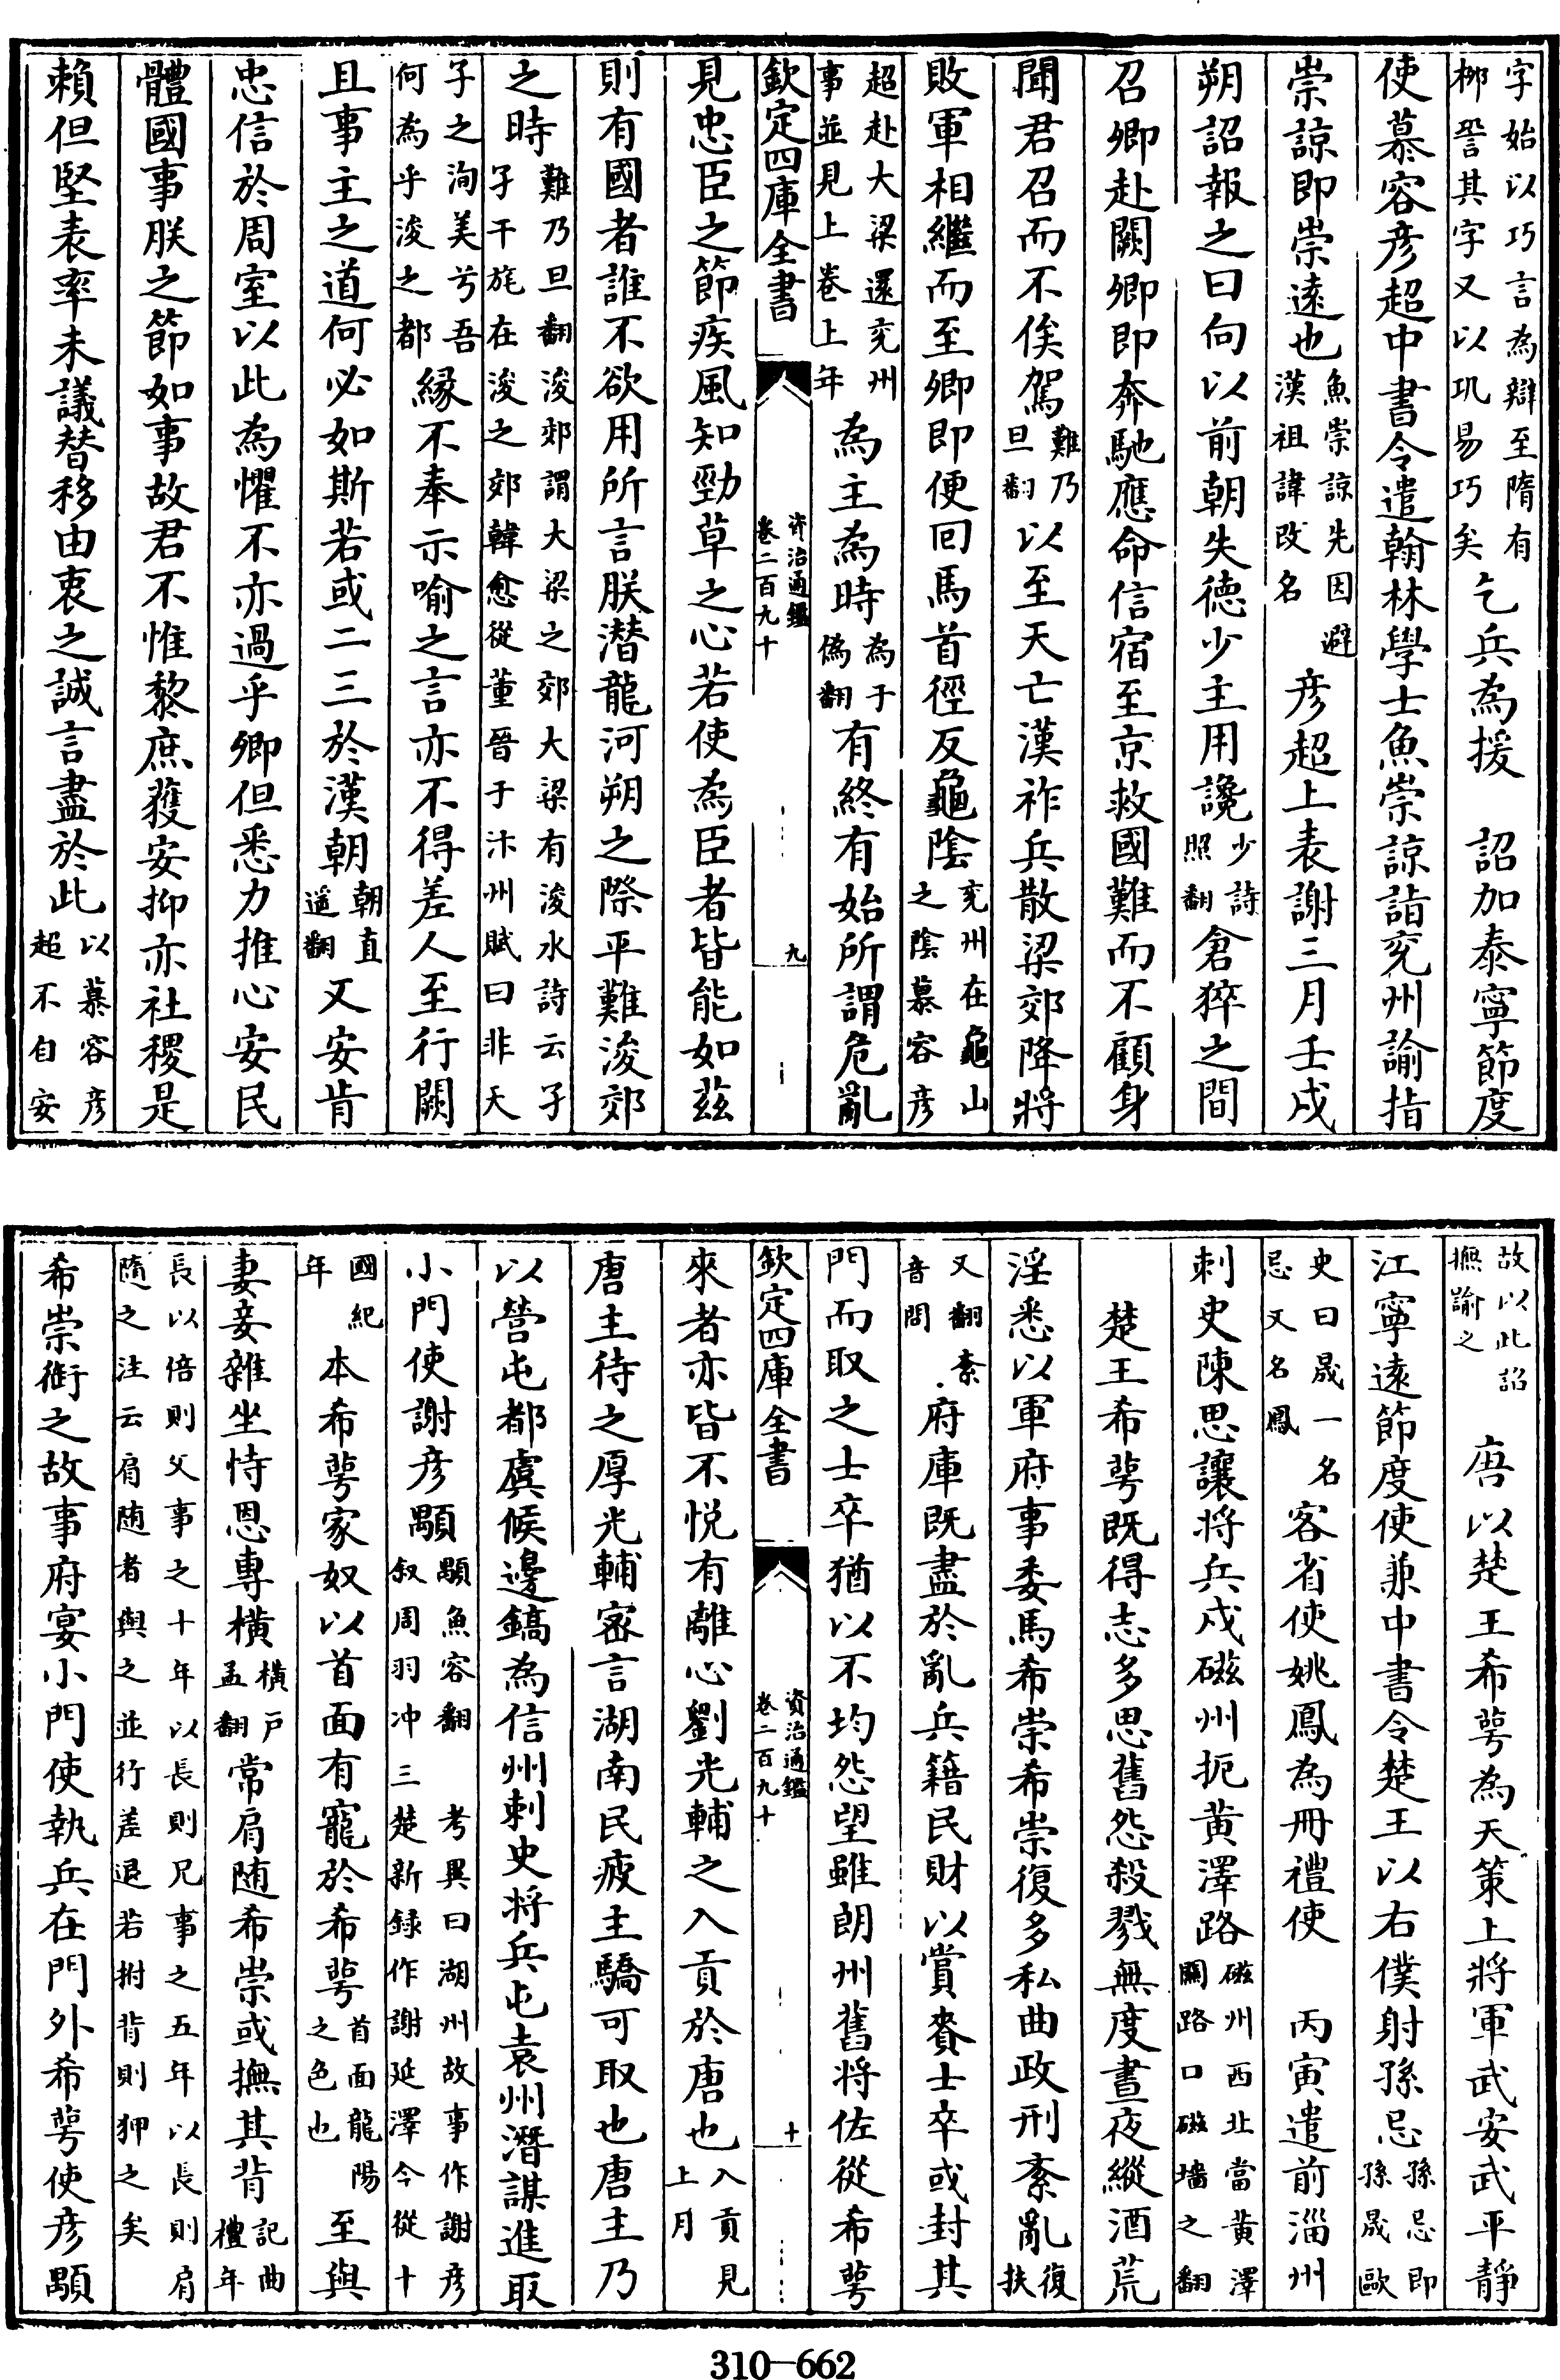 字始以巧言為辯至隋有
栁䛒其字又以巩易巧矣乞兵為援　詔加泰寧節度
使慕容彦超中書令遣翰林學士魚崇諒詣兖州諭指
崇諒即崇遠也魚崇諒先因避漢祖諱改名彦超上表謝三月壬戌
朔詔報之曰向以前朝失德少主用讒少詩照翻倉猝之間
召卿赴闕卿即奔馳應命信宿至京救國難而不顧身
聞君召而不俟駕難乃旦翻以至天亡漢祚兵散梁郊降將
敗軍相繼而至卿即便回馬首徑反龜陰兖州在龜山之陰慕容彦
超赴大梁還兖州事並見上卷上年為主為時為于偽翻有終有始所謂危亂
欽定四庫全書　資治通鑑卷二百九十　九
見忠臣之節疾風知勁草之心若使為臣者皆能如茲
則有國者誰不欲用所言朕潛龍河朔之際平難浚郊
之時難乃旦翻浚郊謂大梁之郊大梁有浚水詩云孑孑干旄在浚之郊韓愈從董晉于汴州賦曰非天
子之洵美兮吾何為乎浚之都緣不奉示喻之言亦不得差人至行闕
且事主之道何必如斯若或二三於漢朝朝直遥翻又安肯
忠信於周室以此為懼不亦過乎卿但悉力推心安民
體國事朕之節如事故君不惟黎庶獲安抑亦社稷是
賴但堅表率未議替移由衷之誠言盡於此以慕容彦超不自安
故以此詔撫諭之唐以楚王希萼為天策上將軍武安武平靜
江寧遠節度使兼中書令楚王以右僕射孫忌孫忌即孫晟歐
史曰晟一名忌又名鳳客省使姚鳳為冊禮使　丙寅遣前淄州
刺史陳思讓將兵戍磁州扼黄澤路磁州西北當黄澤關路口磁墻之翻
楚王希萼既得志多思舊怨殺戮無度晝夜縱酒荒
淫悉以軍府事委馬希崇希崇復多私曲政刑紊亂復扶
又翻紊音問府庫既盡於亂兵籍民財以賞賚士卒或封其
門而取之士卒猶以不均怨望雖朗州舊將佐從希萼
欽定四庫全書　資治通鑑卷二百九十　十
來者亦皆不悦有離心劉光輔之入貢於唐也入貢見上月
唐主待之厚光輔密言湖南民疲主驕可取也唐主乃
以營屯都虞候邊鎬為信州刺史將兵屯袁州潛謀進取
小門使謝彦顒顒魚容翻　考異曰湖州故事作謝彦叙周羽冲三楚新録作謝延澤今從十
國紀年本希萼家奴以首面有寵於希萼首面龍陽之色也至與
妻妾雜坐恃恩專横横戸孟翻常肩随希崇或撫其背記曲禮年
長以倍則父事之十年以長則兄事之五年以長則肩隨之注云肩随者與之並行差退若拊背則狎之矣
希崇銜之故事府宴小門使執兵在門外希萼使彦顒
310—662